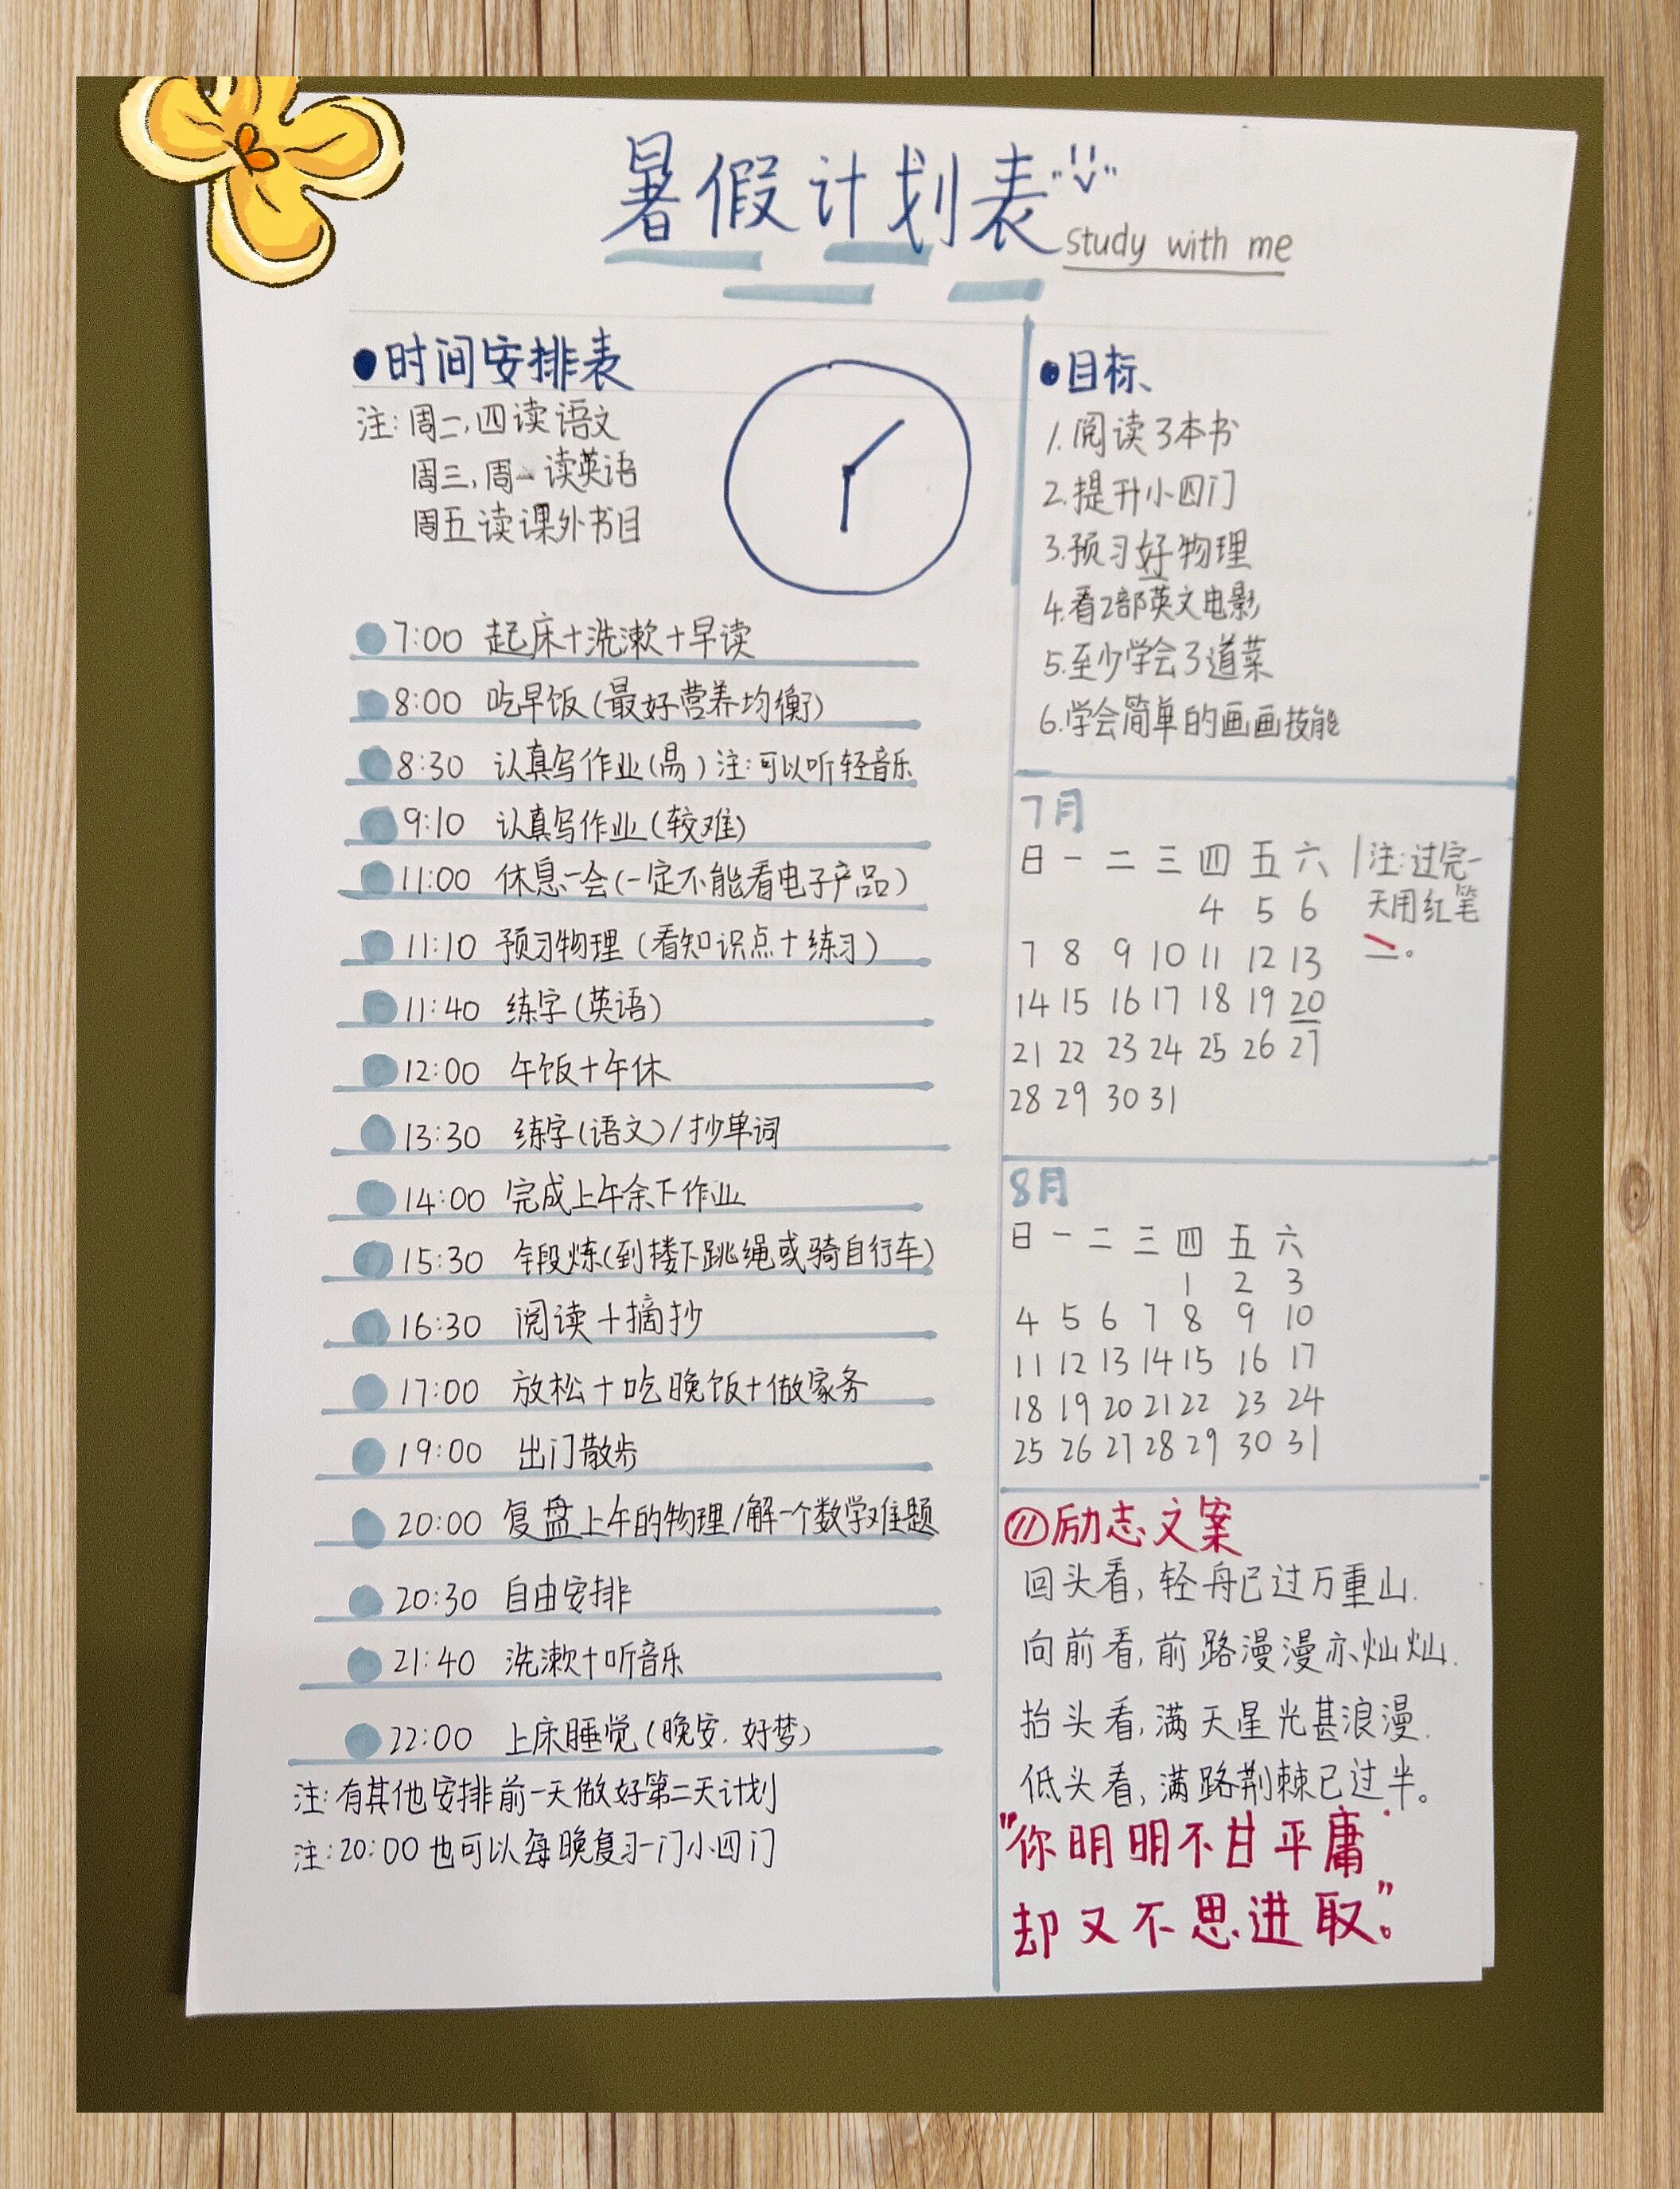 暑假计划表
study with me
●时间安排表
注:周二,四读语文
周三,周一读英语
周五读课外书目
7:00 起床+洗漱+早读
8:00 吃早饭(最好营养均衡)
8:30 认真写作业(易)注:可以听轻音乐
9:10 认真写作业(较难)
11:00 休息一会(一定不能看电子产品)
11:10 预习物理(看知识点+练习)
11:40 练字(英语)
12:00 午饭+午休
13:30 练字(语文)/抄单词
14:00 完成上午余下作业
15:30 锻炼(到楼下跳绳或骑自行车)
16:30 阅读+摘抄
17:00 放松+吃晚饭+做家务
19:00 出门散步
20:00 复盘上午的物理/解一个数学难题
20:30 自由安排
21:40 洗漱+听音乐
22:00 上床睡觉(晚安.好梦)
注:有其他安排前一天做好第二天计划
注:20:00也可以每晚复习一门小四门
●目标、
1.阅读3本书
2.提升小四门
3.预习好物理
4.看2部英文电影
5.至少学会3道菜
6.学会简单的画画技能
7月
日 一 二 三 四 五 六
4 5 6
7 8 9 10 11 12 13
14 15 16 17 18 19 20
21 22 23 24 25 26 27
28 29 30 31
注:过完一
天用红笔
。
8月
日 一 二 三 四 五 六
1 2 3
4 5 6 7 8 9 10
11 12 13 14 15 16 17
18 19 20 21 22 23 24
25 26 27 28 29 30 31
励志文案
回头看,轻舟已过万重山.
向前看,前路漫漫亦灿灿.
抬头看,满天星光甚浪漫.
低头看,满路荆棘已过半。
"你明明不甘平庸
却又不思进取"。